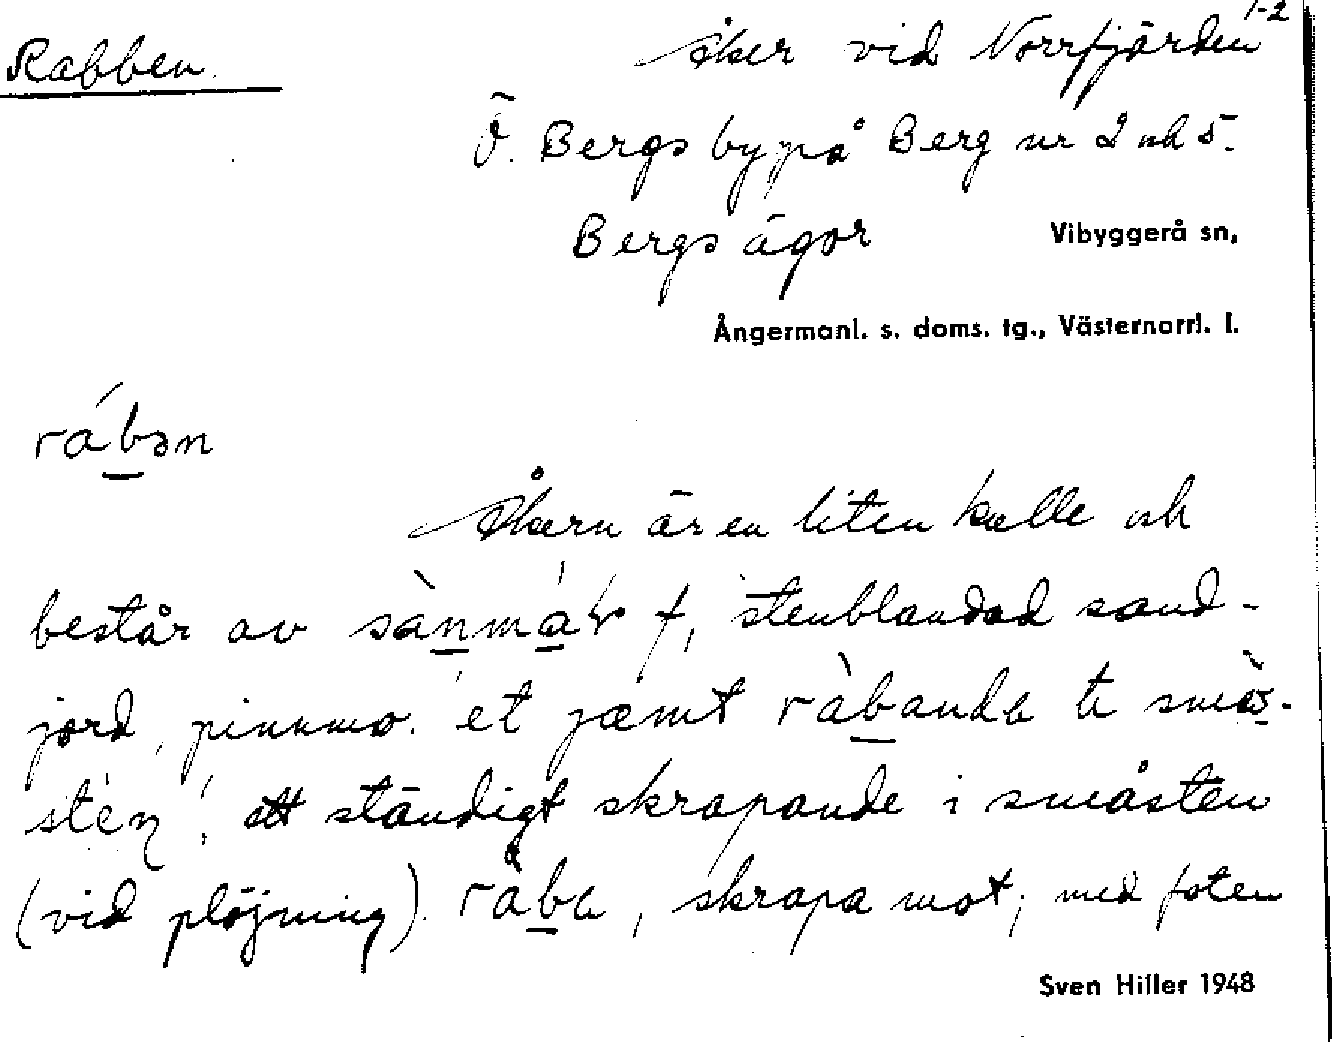 1-2
Rabben. Åker vid Norrfjärden
Ö. Bergs by på Berg nr 2 och 5.
Bergs ägor Vibyggerå sn,
Ångermanl. s. doms. tg., Västernorrl. l.
rábən
Åkern är en liten kulle och
består av sànmá f, stenblandad sand-
jord, pinnmo. 'et jæmt ràbanda ti smòs-
sten', ett ständigt skrapande i småsten
(vid plöjning). ràba, skrapa mot; med foten
Sven Hiller 1948